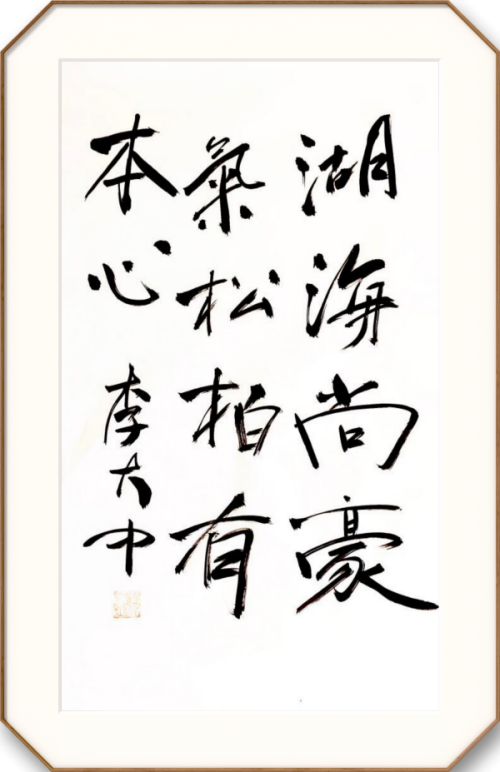 湖海尚豪
氣松柏有
本心
李大中